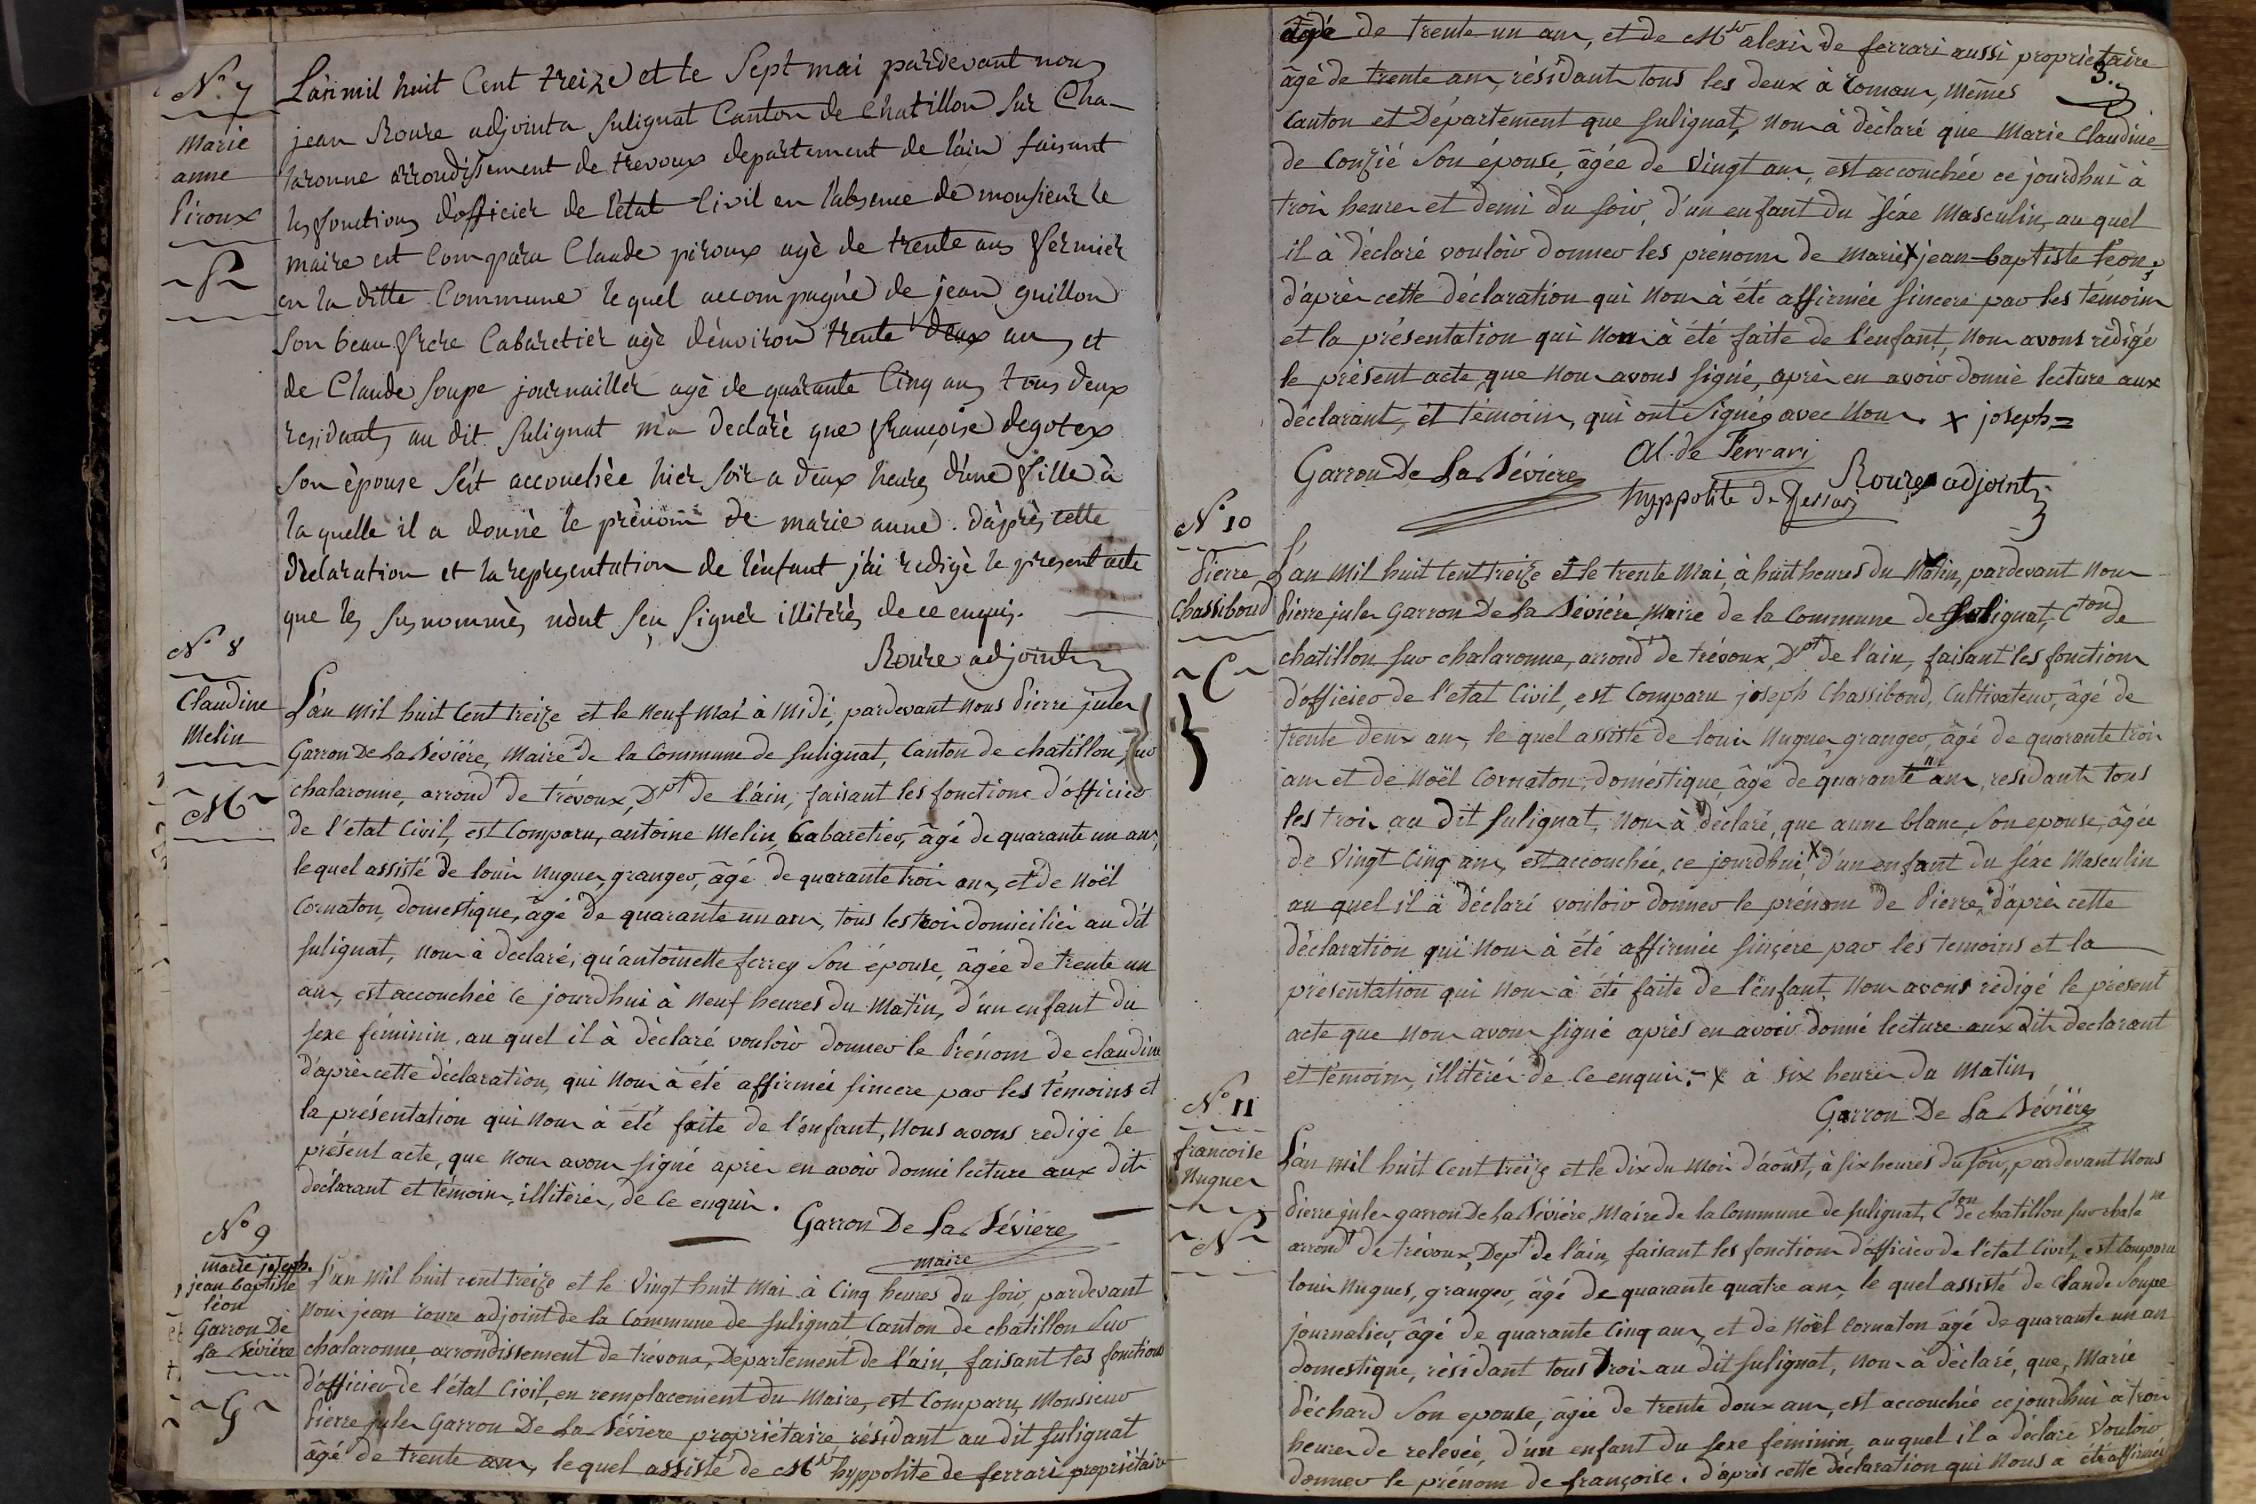 N.° 7
Marie
anne
Piroux
P
L'an mil huit Cent treize et le Sept mai pardevant nous
jean Roure adjoint a Sulignat Canton de Chatillon sur Cha-
laronne arrondissement de trevoux departement de l'ain faisant
les fonctions d'officier de l'etat Civil en l'absence de monsieur le
maire est Comparu Claude piroux agè de trente ans fermier
en la ditte Commune lequel accompagné de jean guillon
Son beau frere Cabaretier agè d'environ trente deux ans et
de Claude Soupe journaillier agè de quarante Cinq ans tous deux
residants au dit Sulignat m'a declarè que françoise degotex
Son èpouse s'est accouchèe hier soir a deux heures d'une fille à
la quelle il a donnè le prènom de marie anne. d'après cette
dèclaration et la representation de l'enfant j'ai redigè le present acte
que les susnommès n'ont seu signer illiterès de ce enquis.
Roure adjoint
N.° 8
Claudine
Melin
M
L'an mil huit Cent treize et le neuf Mai à Midi, pardevant nous Pierre jules
Garron De La Sévière, Maire de la Commune de Sulignat, Canton de chatillon, sur
chalaronne, arrond.t de trévoux, D.pt de l'ain, faisant les fonctions d'officier
de l'état Civil, est Comparu, antoine Melin, Cabaretier, âgé de quarante un ans,
lequel assisté de louis Nugues, granger, âgé de quarante trois ans, et de Noël
Cornaton, domestique, âgé de quarante un ans, tous les trois domiciliés au dit
Sulignat, nous à déclaré, qu'antoinette ferrey Son épouse, âgée de trente un
ans, est accouchée ce jourdhui à neuf heures du Matin, d'un enfant du
sexe féminin, au quel il à déclaré vouloir donner le Prénom de claudine
d'après cette déclaration, qui nous à été affirmée sincere par les témoins et
la présentation qui nous à été faite de l'enfant, nous avons redigé le
présent acte, que nous avons signé après en avoir donné lecture aux dits
déclarant et témoins, illitérés, de ce enquis.
Garron De La Sévière
maire
N.° 9
marie joseph.
jean baptiste
léon
Garron De
La Sévière
G
L'an mil huit cent treize et le Vingt huit Mai à Cinq heures du soir, pardevant
nous jean roure adjoint de la Commune de Sulignat Canton de chatillon Sur
chalaronne, arrondissement de trévoux, Département de l'ain, faisant les fonctions
d'officier de l'état Civil, en remplacement du Maire, est Comparu, Monsieur
Pierre jules Garron De La Sévière propriétaire résidant au dit Sulignat
âgé de trente ans, lequel assisté de M.r hyppolite de ferrari propriétaire
3.
âgé de trente un ans, et de M.r alexis de ferrari aussi propriètaire
âgé de trente ans, résidants tous les deux à romans, mêmes
Canton et Département que Sulignat, nous à déclaré que Marie Claudine
de Conzié Son épouse, âgée de Vingt ans, est accouchée ce jourdhui à
trois heures et demi du soir, d'un enfant du sexe Masculin, au quel
il à déclaré vouloir donner les prénoms de Marie x jean-baptiste léon,
d'après cette déclaration qui nous à été affirmée sincere par les temoins
et la présentation qui nous à été faite de l'enfant, nous avons rédigé
le présent acte, que nous avons signé, après en avoir donné lecture aux
déclarant, et témoins, qui ont signés avec nous. x joseph=
Garron De La Sévière Al. de Ferrari
hyppolite de Ferrari Roure adjoint
N.° 10
Pierre
Chassiboud
C
L'an Mil huit Cent treize et le trente Mai, à huit heures du Matin, pardevant nous
Pierre jules Garron De La Sévière, Maire de la Commune de Sulignat, C.ton de
chatillon sur chalaronne, arrond.t de trévoux, D.pt de l'ain, faisant les fonctions
d'officier de l'etat Civil, est Comparu joseph Chassiboud, Cultivateur, âgé de
trente deux ans, le quel assisté de louis Nugues, granger, âgé de quarante trois
ans et de Noël Cornaton, doméstique, âgé de quarante un ans, residants tous
les trois au dit Sulignat, nous à déclaré, que anne blanc, Son epouse, âgée
de Vingt Cinq ans, est accouchée, ce jourdhui, x d'un enfant du séxe Masculin
au quel il à déclaré vouloir donner le prénom de Pierre, d'après cette
déclaration qui nous à été affirmée sinçére par les temoins et la
présentation qui nous à été faite de l'enfant, nous avons rédigé le présent
acte que nous avons signé après en avoir donné lecture aux dits declarant
et témoins, illitèrés de Ce enquis.- x à six heures du Matin,
Garron De La Sévière
N.° 11
francoise
Nugues
N
L'an mil huit Cent treize et le dix du Mois d'août, à six heures du Soir, pardevant nous
Pierre jules garron De La Sévière, Maire de la Commune de Sulignat, C.ton de chatillon sur chala.ne
arrond.t de trévoux, Dep.t de l'ain, faisant les fonctions d'officier de l'état Civil, est Comparu
louis Nugues, granger, âgé de quarante quatre ans, le quel assisté de Claude Soupe
journalier, âgé de quarante Cinq ans, et de Noël Cornaton âgé de quarante un an
domestique, résidant tous trois au dit Sulignat, nous à déclaré, que, Marie
Péchard Son epouse, âgée de trente deux ans, est accouchée ce jourdhui à trois
heures de relevée, d'un enfant du sexe féminin, auquel il a déclaré Vouloir
donner le prénom de françoise. d'après cette déclaration qui nous a été affirmée